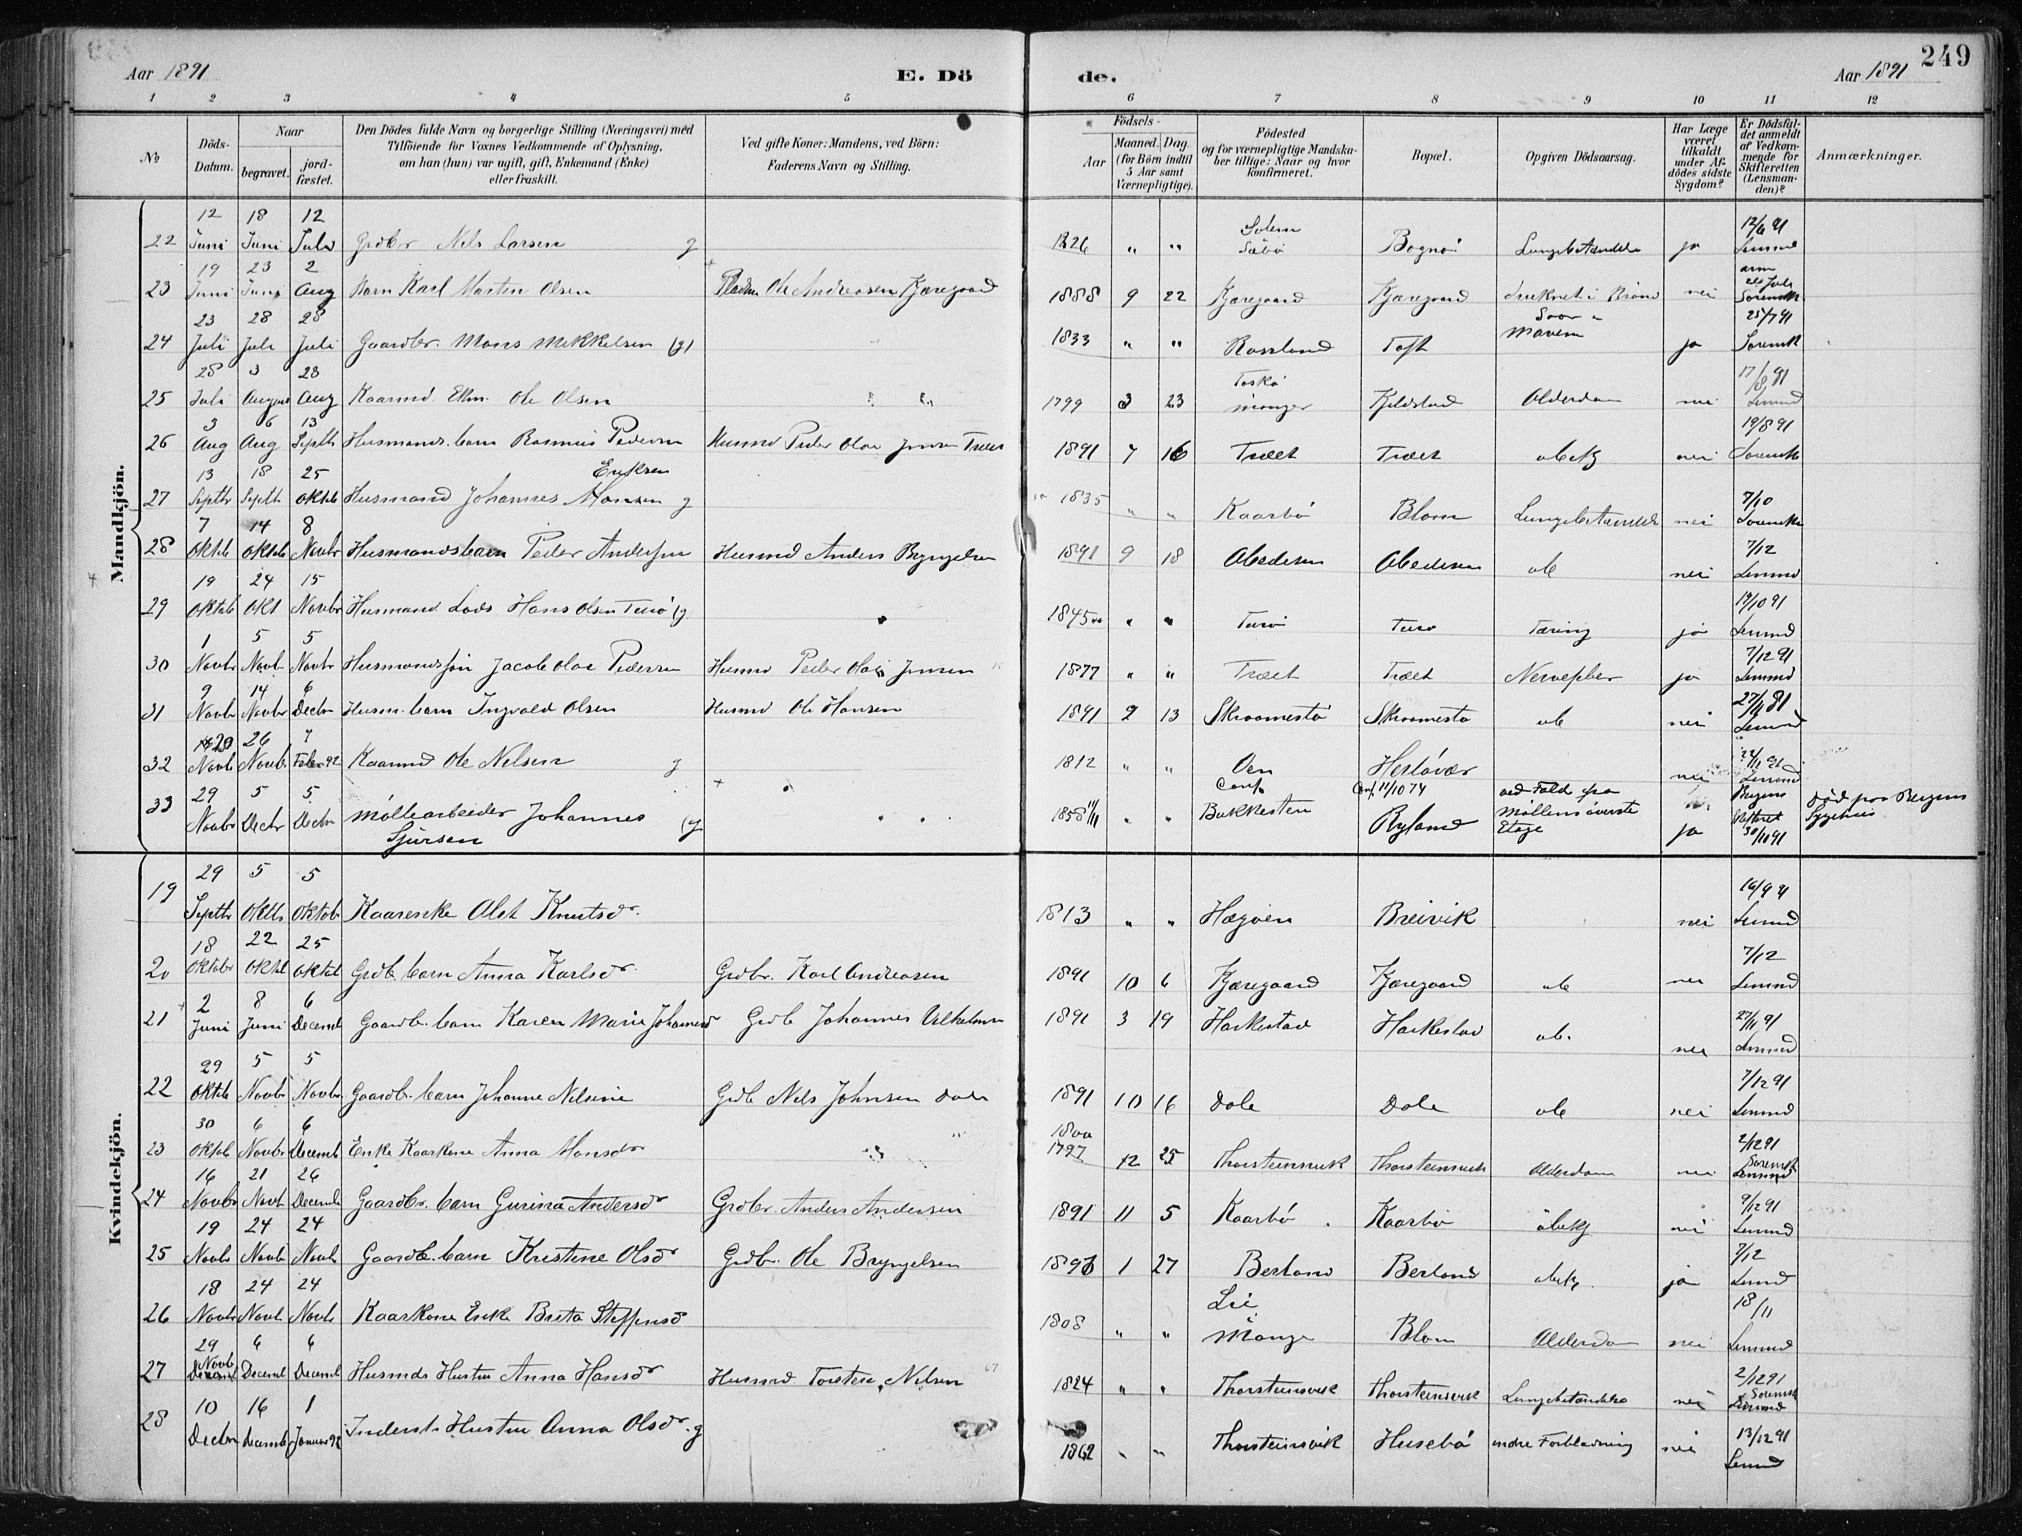 Aar 1891 E. Dö de. Aar 1891 249
1 2 3 4 5 6 7 8 9 10 11 12
No Döds-Datum. Naar begravet. jordfæstet. Den Dödes fulde Navn og borgerlige Stilling (Næringsvei) med Tilföiende for Voxnes Vedkommende af Oplysning, om han (hun) var ugift, gift, Enkemand (Enke) eller fraskilt. Ved gifte Koner: Mandens, ved Börn: Faderens Navn og Stilling. Födsels- Aar Maaned. Dag. (for Börn indtil 5 Aar samt Værnepligtige). Födested og for værnepligtige Mandskaber tillige: Naar og hvor konfirmeret. Bopæl. Opgiven Dödsaarsag. Har Læge været tilkaldt under Afdödes sidste Sygdom? Er Dödsfaldet anmeldt af Vedkommende for Skifteretten (Lensmanden)? Anmærkninger.
Mandkjön.
22 12 Juni 18 Juni 12 Juli Grdbr Nels Larsen g 1826 " " Solem Sæbö Bognö Lungebetændelse ja 12/6 91 Lensmd
23 19 Juni 23 Juni 2 Aug Barn Karl Martin Olsen Ole Andreasen Kjæregaard 1888 9 22 Kjæregaard Kjæregaard druknet i Brönd nei
24 23 Juli 28 Juli 28 Juli Gaardbr. Mons Mikkelsen (g) 1833 " " Rossland Toft Saar i Maven ja 25/7 91 Sorensk
25 28 Juli 3 August 23 Aug Kaarmd. Ekm. Ole Olsen 1799 3 23 Toskö Manger Kjelstad Alderdom nei 17/8 91 Lensmd
26 3 Aug 6 Aug 13 Septb Husmands barn Rasmus Pedersen Husmd Peder Olai Jensen Træet 1891 7 16 Træet Træet ubekj nei 19/8 91 Sorensk
27 13 Septbr 18 Septb 25 Oktob Husmand Johannes Monsen Eriksen g 1835 " " Kaarbö Blom Lungebetændelse nei 7/10 Sorensk
28 7 Oktob 14 Oktob 8 Novbr Husmandsbarn Peder Andersen Husmd Anders Bryngelsen 1891 9 18 Obedesen Obedesen ub nei 7/12 Lensmd
29 19 Oktob 24 Okt 15 Novbr Husmand Lods Hans Olsen Turö (g) 1845 " " Turö Turö Tæring ja 19/10 91 Lensmd
30 1 Novbr 5 Novb. 5 Novbr Husmandssön Jacob Olai Pedersen Husmd Peder Olai Jensen 1877 " " Træet Træet Nervefeber ja 7/12 91 Lensmd
31 9 Novbr 14 Novbr 6 Decbr Husm. barn Ingvald Olsen Husmd Ole Hansen 1891 9 13 Skroamestö Skroamestö ub nei 27/11 91 Lensmd
32 20 Novb 26 Novb. 7 Febr 92 Kaarmd Ole Nelsen g 1812 " " Oen Herlövær nei 27/11 91 Lensmd
33 29 Novbr 5 Decbr 5 Decbr Möllearbeider Johannes Sjursen (g) 1858 11/11 " " Bukkesten Conf. Conf. 11/10 74 Ryland ved Fald fra Möllens överste Etage ja Bergens Skifteret 30/11 91 Död paa Bergens Sygehus
Kvindekjön.
19 29 Septbr 5 Oktb 5 Oktob Kaarenke Olet Knutsdr. 1813 " " Hægöen Breivik nei Lensmd
20 18 Oktobr 22 Oktb 25 Oktob Grdb. barn Anna Karlsdr. Grdbr. Karl Andreasen 1891 10 6 Kjæregaard Kjæregaard ub nei 7/12 Lensmd
21 2 Juni 8 Juni 6 Decemb Gaardb. barn Karen Maria Johannesd Grdb Johannes Vilhelmsen 1891 3 19 Harkestad Harkestad ub. nei 27/11 91 Lensmd
22 29 Oktob 5 Novbr 5 Novbr. Gaardb. barn Johanne Nelsine Grdb Nels Johnsen Dale 1891 10 16 Dale Dale ub nei 7/12 91 Lensmd
23 30 Oktob 6 Novbr 6 Decemb Enke Kaarkone Anna Monsdr 1800 1797 12 25 Thorsteinsvik Thorsteinsvik Alderdom nei 2/12 91 Sorensk Lensmd
24 16 Novbr 21 Novb 26 Decemb Gaardbr. barn Gurina Andersdr Grdbr. Anders Andersen 1891 11 5 Kaarbö Kaarbö ubekj nei 9/12 91 Lensmd
25 19 Novbr 24 Novbr 24 Novb Gaardb. barn Kristine Olsdr Grdbr. Ole Bryngelsen 1890 1 27 Berland Berland ubekj. ja 7/12 Lensmd
26 18 Novbr 24 Novb 24 Novbr Kaarkone Enke Brita Steffensdr 1808 " " Lie Mange Blom Alderdom nei 18/11 Lensmd
27 29 Novb 6 Decemb 6 Decemb Husmds Hustru Anna Hansdr Husmd Torsten Nelsen 67 1824 " " Thorsteinsvik Thorsteinsvik Lungebetændelse nei 2/12 91 Sorensk Lensmd
28 10 Decbr 16 Decemb 1 Januar 92 Inderst. Hustru Anna Olsdr. g 1862 " " Thorsteinsvik Husebö indre Forblödning nei 13/12 91 Lensmd